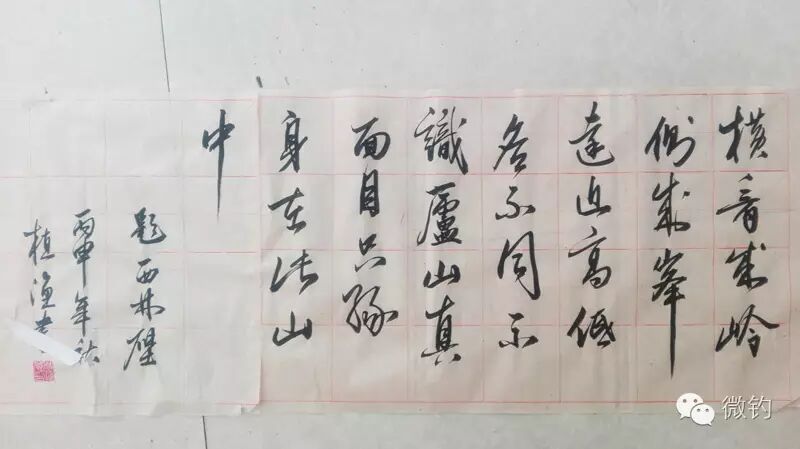 橫看成岭
側成峯
遠近高低
各不同不
識廬山真
面目只緣
身在此山
中
題西林壁
丙申年秋
植渔
微钓